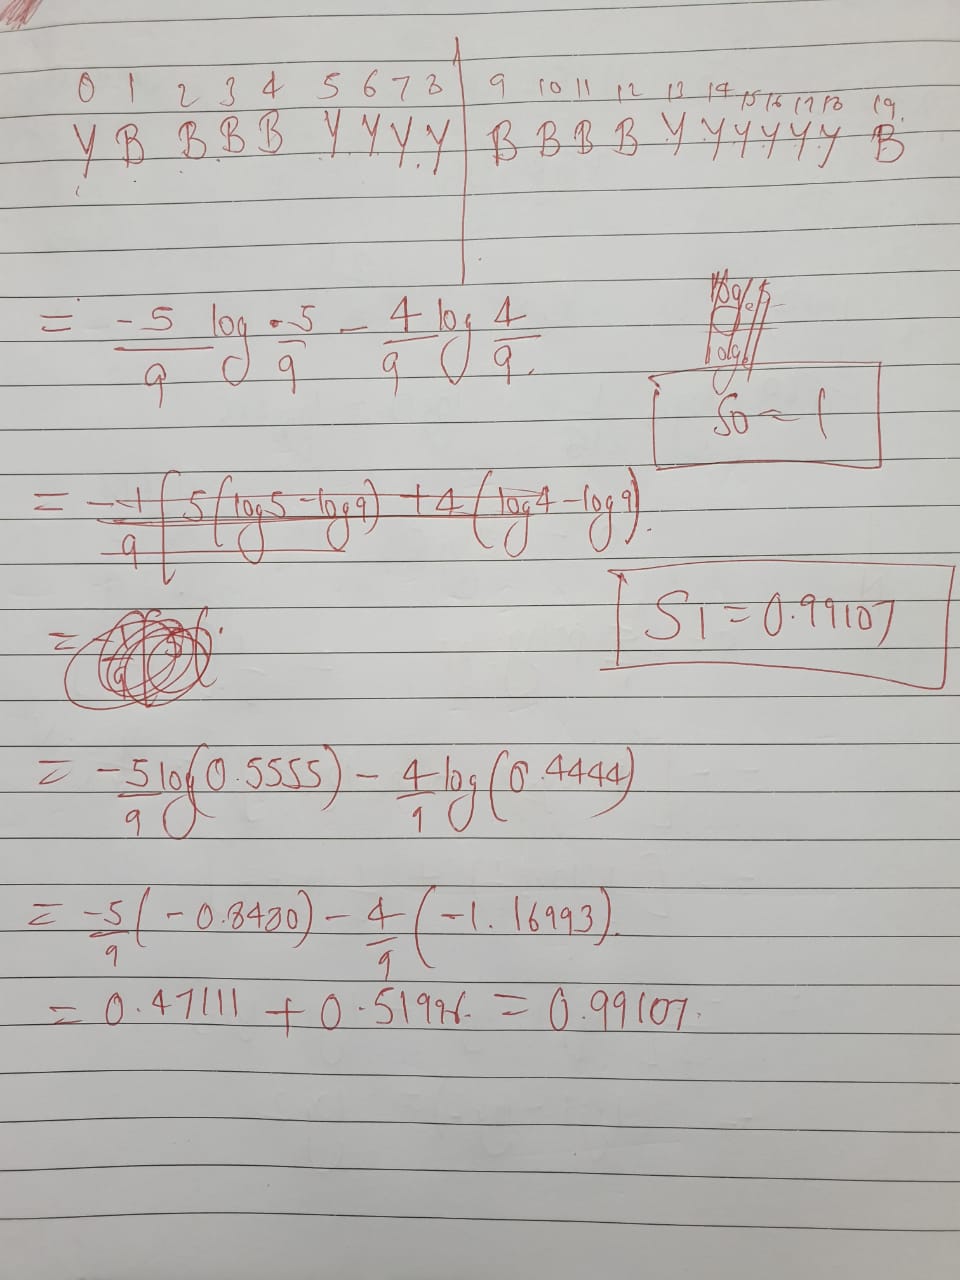 0 1 2 3 4 5 6 7 8 9 10 11 12 13 14 15 16 17 18 19.
Y B B B B Y Y Y Y B B B B Y Y Y Y Y Y B
= -5/9 log -5/9 - 4/9 log 4/9.
S0 = 1
= -1/9 [ 5 (log 5 - log 9) + 4 (log 4 - log 9).
=
S1 = 0.99107
= -5/9 log (0.5555) - 4/9 log (0.4444)
= -5/9 (-0.8480) - 4/9 (-1.16993).
= 0.47111 + 0.51996. = 0.99107.